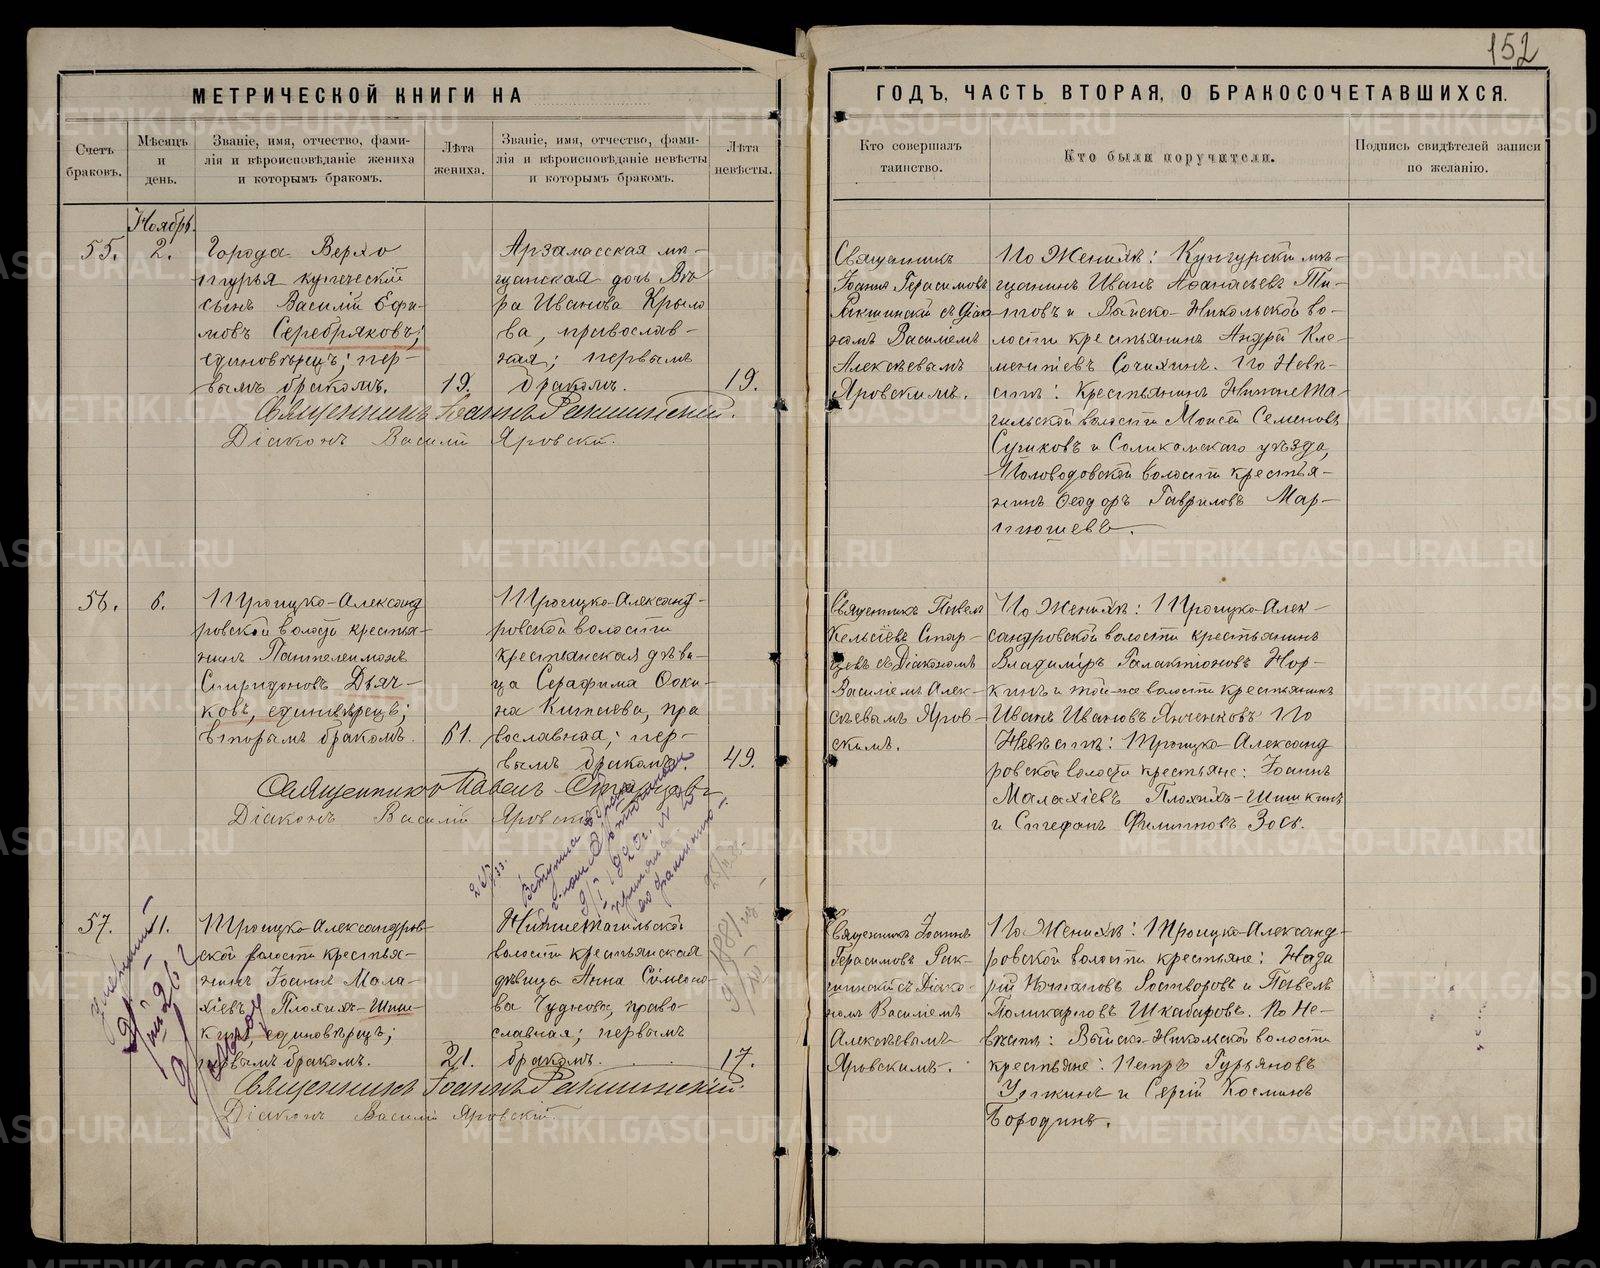 152
МЕТРИЧЕСКОЙ КНИГИ НА
ГОДЪ, ЧАСТЬ ВТОРАЯ, О БРАКОСОЧЕТАВШИХСЯ.
Счетъ
браковъ.
Мѣсяцъ
и
день.
Званіе, имя, отчество, фами-
лія и вѣроисповѣданіе жениха
и которымъ бракомъ.
Лѣта
жениха.
Званіе, имя, отчество, фами-
лія и вѣроисповѣданіе невѣсты
и которымъ бракомъ.
Лѣта
невѣсты.
Кто совершалъ
таинство.
Кто были поручители.
Подпись свидѣтелей записи
по желанію.
Ноябрь.
55.
2.
Города Верхо
турья купеческій
сынъ Василій Ефи-
мовъ Серебряковъ;
единовѣрецъ; пер-
вымъ бракомъ.
19.
Арзамасская мѣ-
щанская дочь Вѣ
ра Иванова Крыло
ва, православ-
ная; первымъ
бракомъ.
19.
Священникъ
Іоаннъ Герасимовъ
Ракшинскій съ Діако-
номъ Василіемъ
Алексѣевымъ
Яровскимъ.
По Женихѣ: Кунгурскій мѣ-
щанинъ Иванъ Афанасьевъ Ти-
товъ и Выйско-Никольской во-
лости крестьянинъ Андрей Кле-
ментіевъ Сочихинъ. По Невѣ-
стѣ: Крестьянинъ Нижнета-
гильской волости Моисей Семеновъ
Суриковъ и Соликамскаго уѣзда,
Половодовской волости крестья-
нинъ Ѳеодоръ Гавриловъ Мар-
тюшевъ.
Священникъ Іоаннъ Ракшинскій.
Діаконъ Василій Яровскій.
56.
6.
Троицко-Александ
ровской волости крестья-
нинъ Пантелеимонъ
Спиридоновъ Дьяч-
ковъ, единовѣрецъ;
вторымъ бракомъ.
61.
Троицко-Александ-
ровской волости
крестьянская дѣви-
ца Серафима Ѳоки-
на Кипѣева, пра
вославная; пер-
вымъ бракомъ.
49.
Священникъ Павелъ
Кельсіевъ Стар-
цевъ съ Діакономъ
Василіемъ Алек-
сѣевымъ Яров-
скимъ.
По Женихѣ: Троицко-Алек-
сандровской волости крестьянинъ
Владиміръ Галактіоновъ Нор-
кинъ и той-же волости крестьянинъ
Иванъ Ивановъ Янченковъ. По
Невѣстѣ: Троицко-Александ
ровской волости крестьяне: Іоаннъ
Малахіевъ Плохихъ-Шишкинъ
и Стефанъ Филипповъ Зоск.
Священникъ Павелъ Старцевъ
Діаконъ Василій Яровскій
57.
11.
Троицко-Александров-
ской волости крестья-
нинъ Іоаннъ Мала-
хіевъ Плохихъ-Шиш-
кинъ, единовѣрецъ;
первымъ бракомъ.
21.
Нижнетагильской
волости крестьянская
дѣвица Анна Симеоно-
ва Чуднова, право-
славная; первымъ
бракомъ.
17.
Священникъ Іоаннъ
Герасимовъ Рак-
шинскій съ Діако-
номъ Василіемъ
Алексѣевымъ
Яровскимъ.
По Женихѣ: Троицко-Александ-
ровской волости крестьяне: Наза
рій Потаповъ Растворовъ и Павелъ
Поликарповъ Шкабаровъ. По Не-
вѣстѣ: Выйско-Никольской волости
крестьяне: Петръ Гурьяновъ
Уткинъ и Сергій Косминъ
Бородинъ.
Священникъ Іоаннъ Ракшинскій.
Діаконъ Василій Яровскій.
METRIKI.GASO-URAL.RU